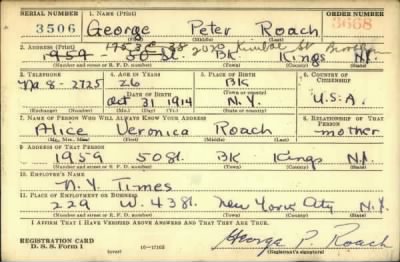 SERIAL NUMBER 1. NAME (Print) ORDER NUMBER
3506 George Peter Roach 3668
(First) (Middle) (Last)
2. ADDRESS (Print)
1959 50 St. BK Kings N.Y.
(Number and street or R. F. D. number) (Town) (County) (State)
3. TELEPHONE 4. AGE IN YEARS 5. PLACE OF BIRTH 6. COUNTRY OF CITIZENSHIP
26 BK
8-2725 DATE OF BIRTH
Oct 31 1914 N.Y. U.S.A.
(Exchange) (Number) (Mo.) (Day) (Yr.) (State or country)
7. NAME OF PERSON WHO WILL ALWAYS KNOW YOUR ADDRESS 8. RELATIONSHIP OF THAT PERSON
Alice Veronica Roach mother
(Mr., Mrs., Miss) (First) (Middle) (Last)
9. ADDRESS OF THAT PERSON
1959 50 St. BK Kings N.Y.
(Number and street or R. F. D. number) (Town) (County) (State)
10. EMPLOYER'S NAME
N.Y. Times
11. PLACE OF EMPLOYMENT OR BUSINESS
229 W. 43 St. New York City N.Y.
(Number and street or R. F. D. number) (Town) (County) (State)
I AFFIRM THAT I HAVE VERIFIED ABOVE ANSWERS AND THAT THEY ARE TRUE.
REGISTRATION CARD George P. Roach
D. S. S. Form 1 (over) 16—17105 (Registrant's signature)